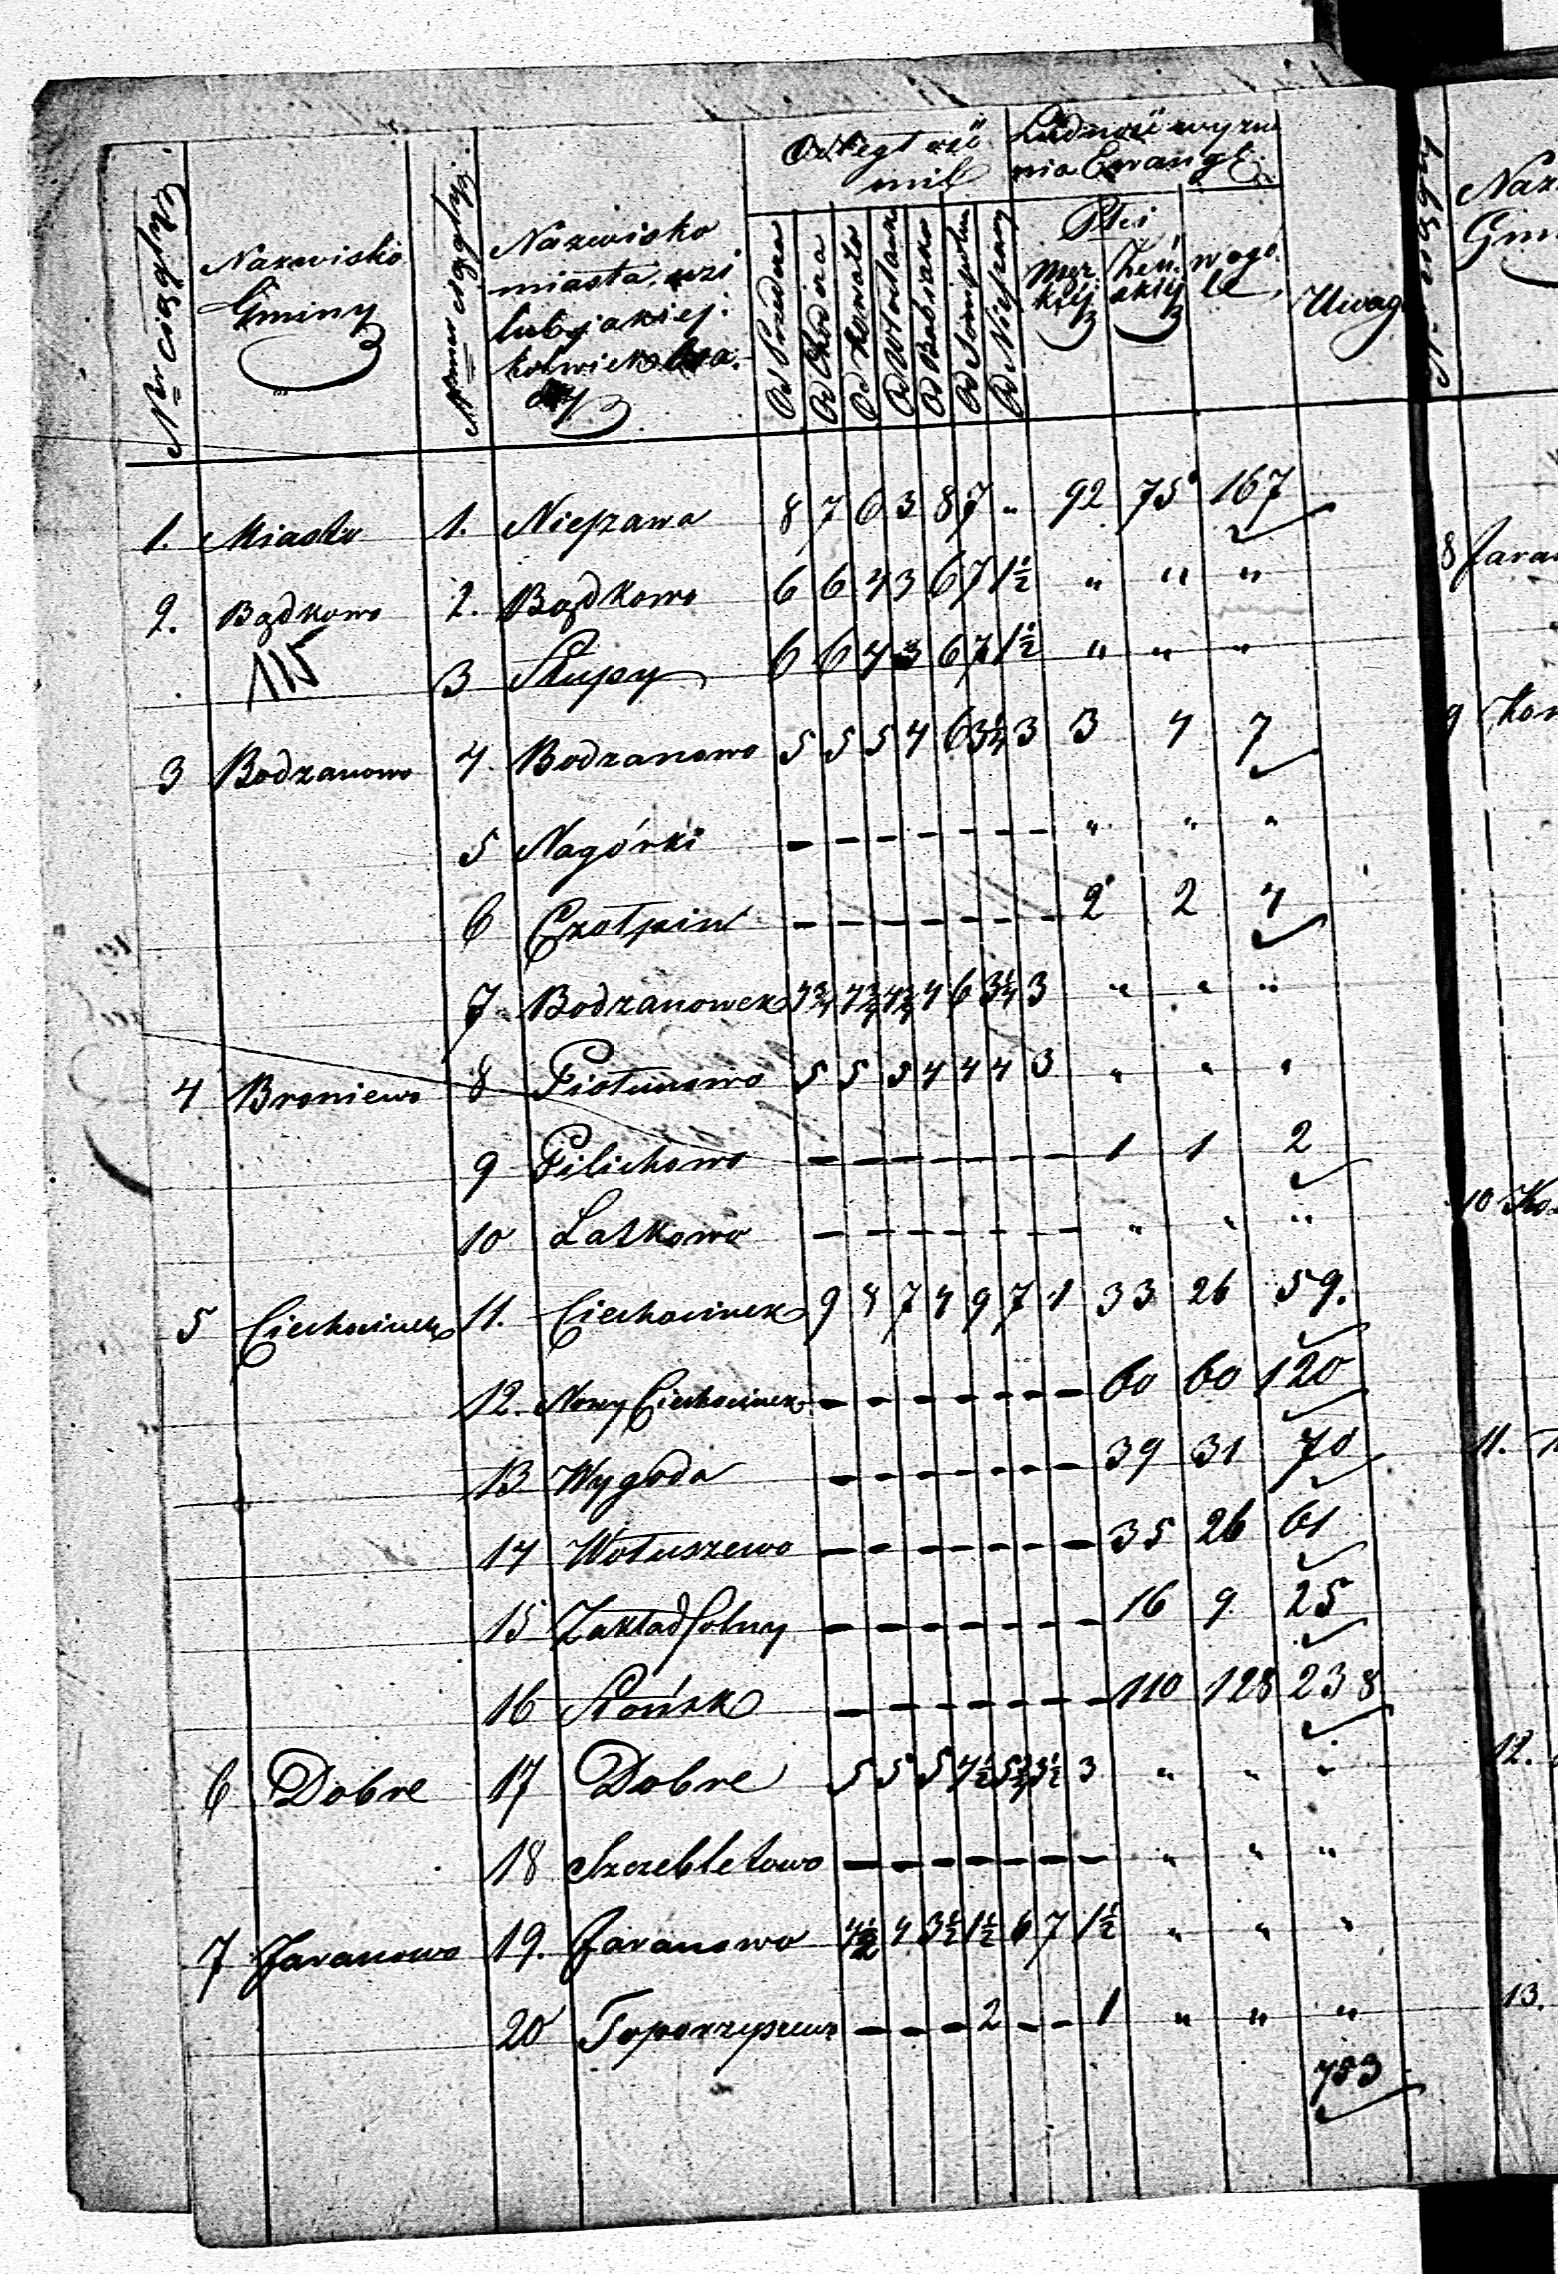 Odległość mil
Ludność wyznania Ewangl:
Nr ciągły
Nazwisko Gminy
Numer ciągły
Nazwisko miasta, wsi lub jakiej: kolwiek osady
Od Przedcza
Od Chodcza
Od Kowala
Od Włocławka
Od Babiaka
Od Sompolna
Od Nieszawy
Płci
Męzkiéj
Żeńskiéj
w ogóle
Uwagi
1. Miasto 1. Nieszawa 8 7 6 3 8 7 " 92 75 167
2. Bądkowo 2. Bądkowo 6 6 4 3 6 7 1½ " " "
115
3 Słupy 6 6 4 3 6 7 1½ " " "
3 Bodzanowo 4 Bodzanowo 5 5 5 4 6 3¼ 3 3 4 7
5 Nagórki - - - - - - - " " "
6 Czołpin - - - - - - - 2 2 4
7 Bodzanowek 4¾ 4¾ 4¾ 4 6 3¼ 3 " " "
4 Broniewo 8 Piołunowo 5 5 5 4 4 4 3 " " "
9 Pilichowo - - - - - - - 1 1 2
10 Latkowo - - - - - - - " " "
5 Ciechocinek 11. Ciechocinek 9 8 7 4 9 7 1 33 26 59.
12. Nowy Ciechocinek - - - - - - - 60 60 120
13 Wygoda - - - - - - - 39 31 70
14 Wołuszewo - - - - - - - 35 26 61
15 Zakład Solny - - - - - - - 16 9 25
16 Słońsk - - - - - - - 110 128 238
6 Dobre 17 Dobre 5 5 5 4½ 5¾ 3½ 3 " " "
18 Szczebletowo - - - - - - - " " "
7 Jaranowo 19. Jaranowo 4½ 4 3½ 1½ 6 7 1½ " " "
20 Toporzyszewo - - - 2 - - 1 " " "
753
8
9
10
11.
12.
13.